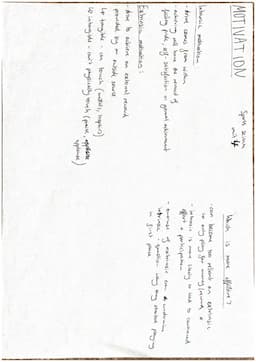 MOTIVATION
Sports Science
Intrinsic motivation
- drive comes from within
achieving will have the reward of
feeling pride, self satisfaction or general enjoyment
Extrinsic motivation:
- drive to achieve an external reward
provided by an outside source
↳ tangible - can touch (medals, trophies)
↳ intangible - can't physically touch (praise,
applause)
Which is more effective?
- can become too reliant on extrinsic:
ie only play for money/rewards
- intrinsic is more likely to lead to continued
effort + participation
- overuse of extrinsic can undermine
intrinsic - question why they started playing
in first place